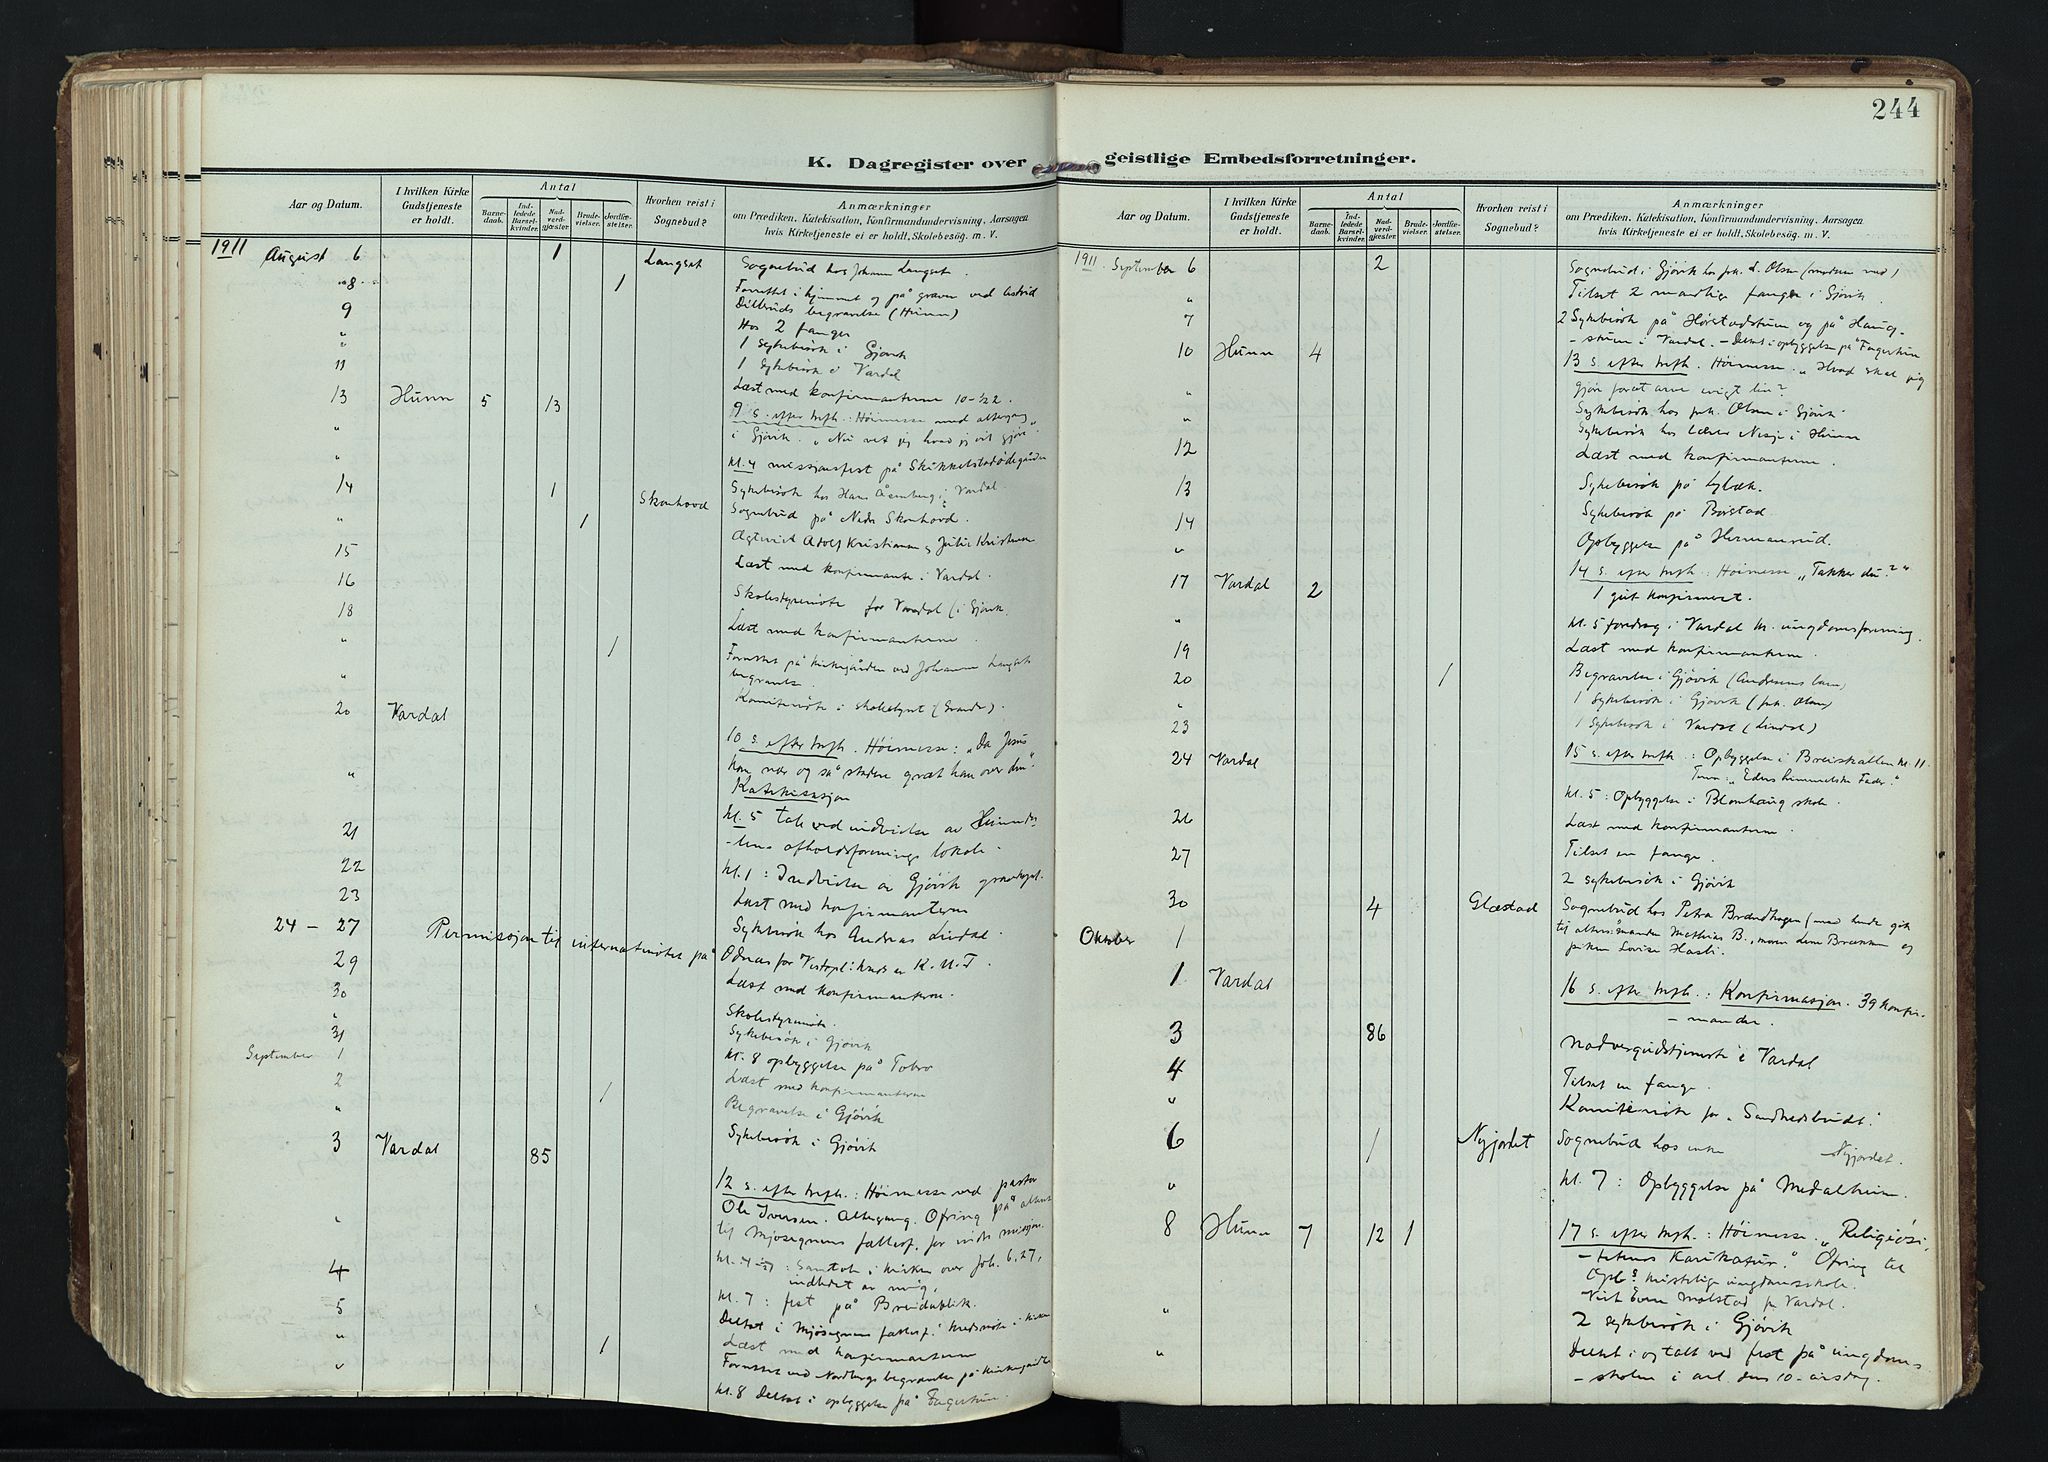 244
K. Dagregister over geistlige Embedsforretninger.
Aar og Datum.
I hvilken Kirke Gudstjeneste er holdt.
Antal
Barnedaab.
Indledede Barselkvinder.
Nadverdgjæster.
Brudevielser.
Jordfæstelser.
Hvorhen reist i Sognebud?
Anmærkninger
om Prædiken, Katekisation, Konfirmandundervisning, Aarsagen
hvis Kirketjeneste ei er holdt, Skolebesøg. m. V.
1911 August 6 1 Langset Sognebud hos Johanne Langset.
8 1 Forrettet i hjemmet og på graven ved Astrid
begravelse (Hunn)
9 Hos 2 fanger
" 1 sykebesök i Gjövik
" 1 sykebesök i Vardal
11 Læst med konfirmanterne 10-12.
13 Hunn 5 13 9 s. efter trefh.: Höimesse med altergang
i Gjövik. "Nu vet jeg hvad jeg vil gjöre".
" kl. 4 missjonsfest på Skikkelstadödegården
" Sykebesök hos Hans i Vardal.
14 1 Skonhovd Sognebud på Nedre Skonhovd.
" 1 Ægteviet Adolf Kristiansen og Julie Kristiansen
15 Læst med konfirmanter i Vardal.
16 Skolestyremöte for Vardal (i Gjövik.
18 Læst med konfirmanterne.
" 1 Forrettet på kirkegården ved Johanne Langsets
begravelse.
" Komitemöte i skolestyret
20 Vardal 10 s. efter trefh. Höimesse: "Da Jesus
kom nær og så staden græt han over den".
Katekisasjon
" kl. 5 tale ved indvielse av
avholdsforenings lokale.
21 kl. 1: Indvielse av Gjövik
22 Læst med konfirmanterne
23 Sykebesök hos Andreas Lindal.
24 - 27 Permissjon til internatmötet på Odnes for Vestopl. kreds av K.U.F.
29 Læst med konfirmanterne.
30 Skolestyremöte.
" Sykebesök i Gjövik
31 kl. 8 opbyggelse på Tobro
September 1 Læst med konfirmanterne
2 1 Begravelse i Gjövik
" Sykebesök i Gjövik
3 Vardal 85 12 s. efter trefh.: Höimesse ved pastor
Ole Iversen. Altergang. Ofring på alteret
til Mjösegnens fællesf. for indre missjon.
" kl. 4-7: Samtale i kirken over Joh. 6,27,
indledet av mig.
4 kl. 7: fest på Breidablik.
5 Deltat i Mjösegnens fællesf.s kredsmöte i kirken
" Læst med konfirmanterne
" 1 Forrettet ved Nordbergs begravelse på kirkegården
kl. 8 Deltat i opbyggelse på Fagertun.
Aar og Datum.
I hvilken Kirke Gudstjeneste er holdt.
Antal
Barnedaab.
Indledede Barselkvinder.
Nadverdgjæster.
Brudevielser.
Jordfæstelser.
Hvorhen reist i Sognebud?
Anmærkninger
om Prædiken, Katekisation, Konfirmandundervisning, Aarsagen
hvis Kirketjeneste ei er holdt, Skolebesög. m. V.
1911. September 6 2 Sognebud i Gjövik hos frk. Olsen (moderen med)
" Tilset 2 mandlige fanger i Gjövik.
7 2 Sykebesök på Hörstadstuen og på Haug-
-stuen i Vardal. - Deltat i opbyggelse på "Fagertun
10 Hunn 4 13 s. efter trefh. Höimesse. "Hvad skal jeg
gjöre forat arve evigt liv?
" Sykebesök hos frk. Olsen i Gjövik
" Sykebesök hos Lærer i Hunn
12 Læst med konfirmanterne.
13 Sykebesök på Lybæk.
14 Sykebesök på Börstad
" Opbyggelse på Hermanrud.
17 Vardal 2 14 s. efter trefh.: Höimesse "Takker du?"
1 gut konfirmert.
" kl. 5 foredrag i Vardal kr. ungdomsforening.
19 Læst med konfirmanterne.
20 1 Begravelse i Gjövik (Andresens barn)
" 1 Sykebesök i Gjövik (frk. Olsen)
23 1 Sykebesök i Vardal (Lindal)
24 Vardal 15 s. efter trefh.: Opbyggelse i Breiskallen kl. 11.
Emne: "Eders himmelske Fader."
kl. 5: Opbyggelse i Blomhaug skole.
26 Læst med konfirmanterne.
27 Tilset en fange.
2 sykebesök i Gjövik
30 4 Glæstad Sognebud hos Petra Brændhagen (med hende gik
til alters: manden Mathias B., moren Lene Brænnen og
piken Lovise Hasli.
Oktober 1
1 Vardal 16 s. efter trefh.: Konfirmasjon. 39 konfir-
- mander.
3 86 Nadvergudstjeneste i Vardal
4 Tilset en fange.
" Komitemöte for "Sandhedsbudet".
6 1 Nyjordet Sognebud hos enke Nyjordet.
" kl. 7: Opbyggelse på Medalheim.
8 Hunn 7 12 1 17 s. efter trefh.: Höimesse. "Religiösi-
- tetens karikatur". Ofring til
Opl.s kristelige ungdomsskole.
Viet Even Molstad fra Vardal.
" 2 sykebesök i Gjövik
" Deltat i og talt ved fest på ungdoms-
- skolen i anl. dens 10-årsdag.